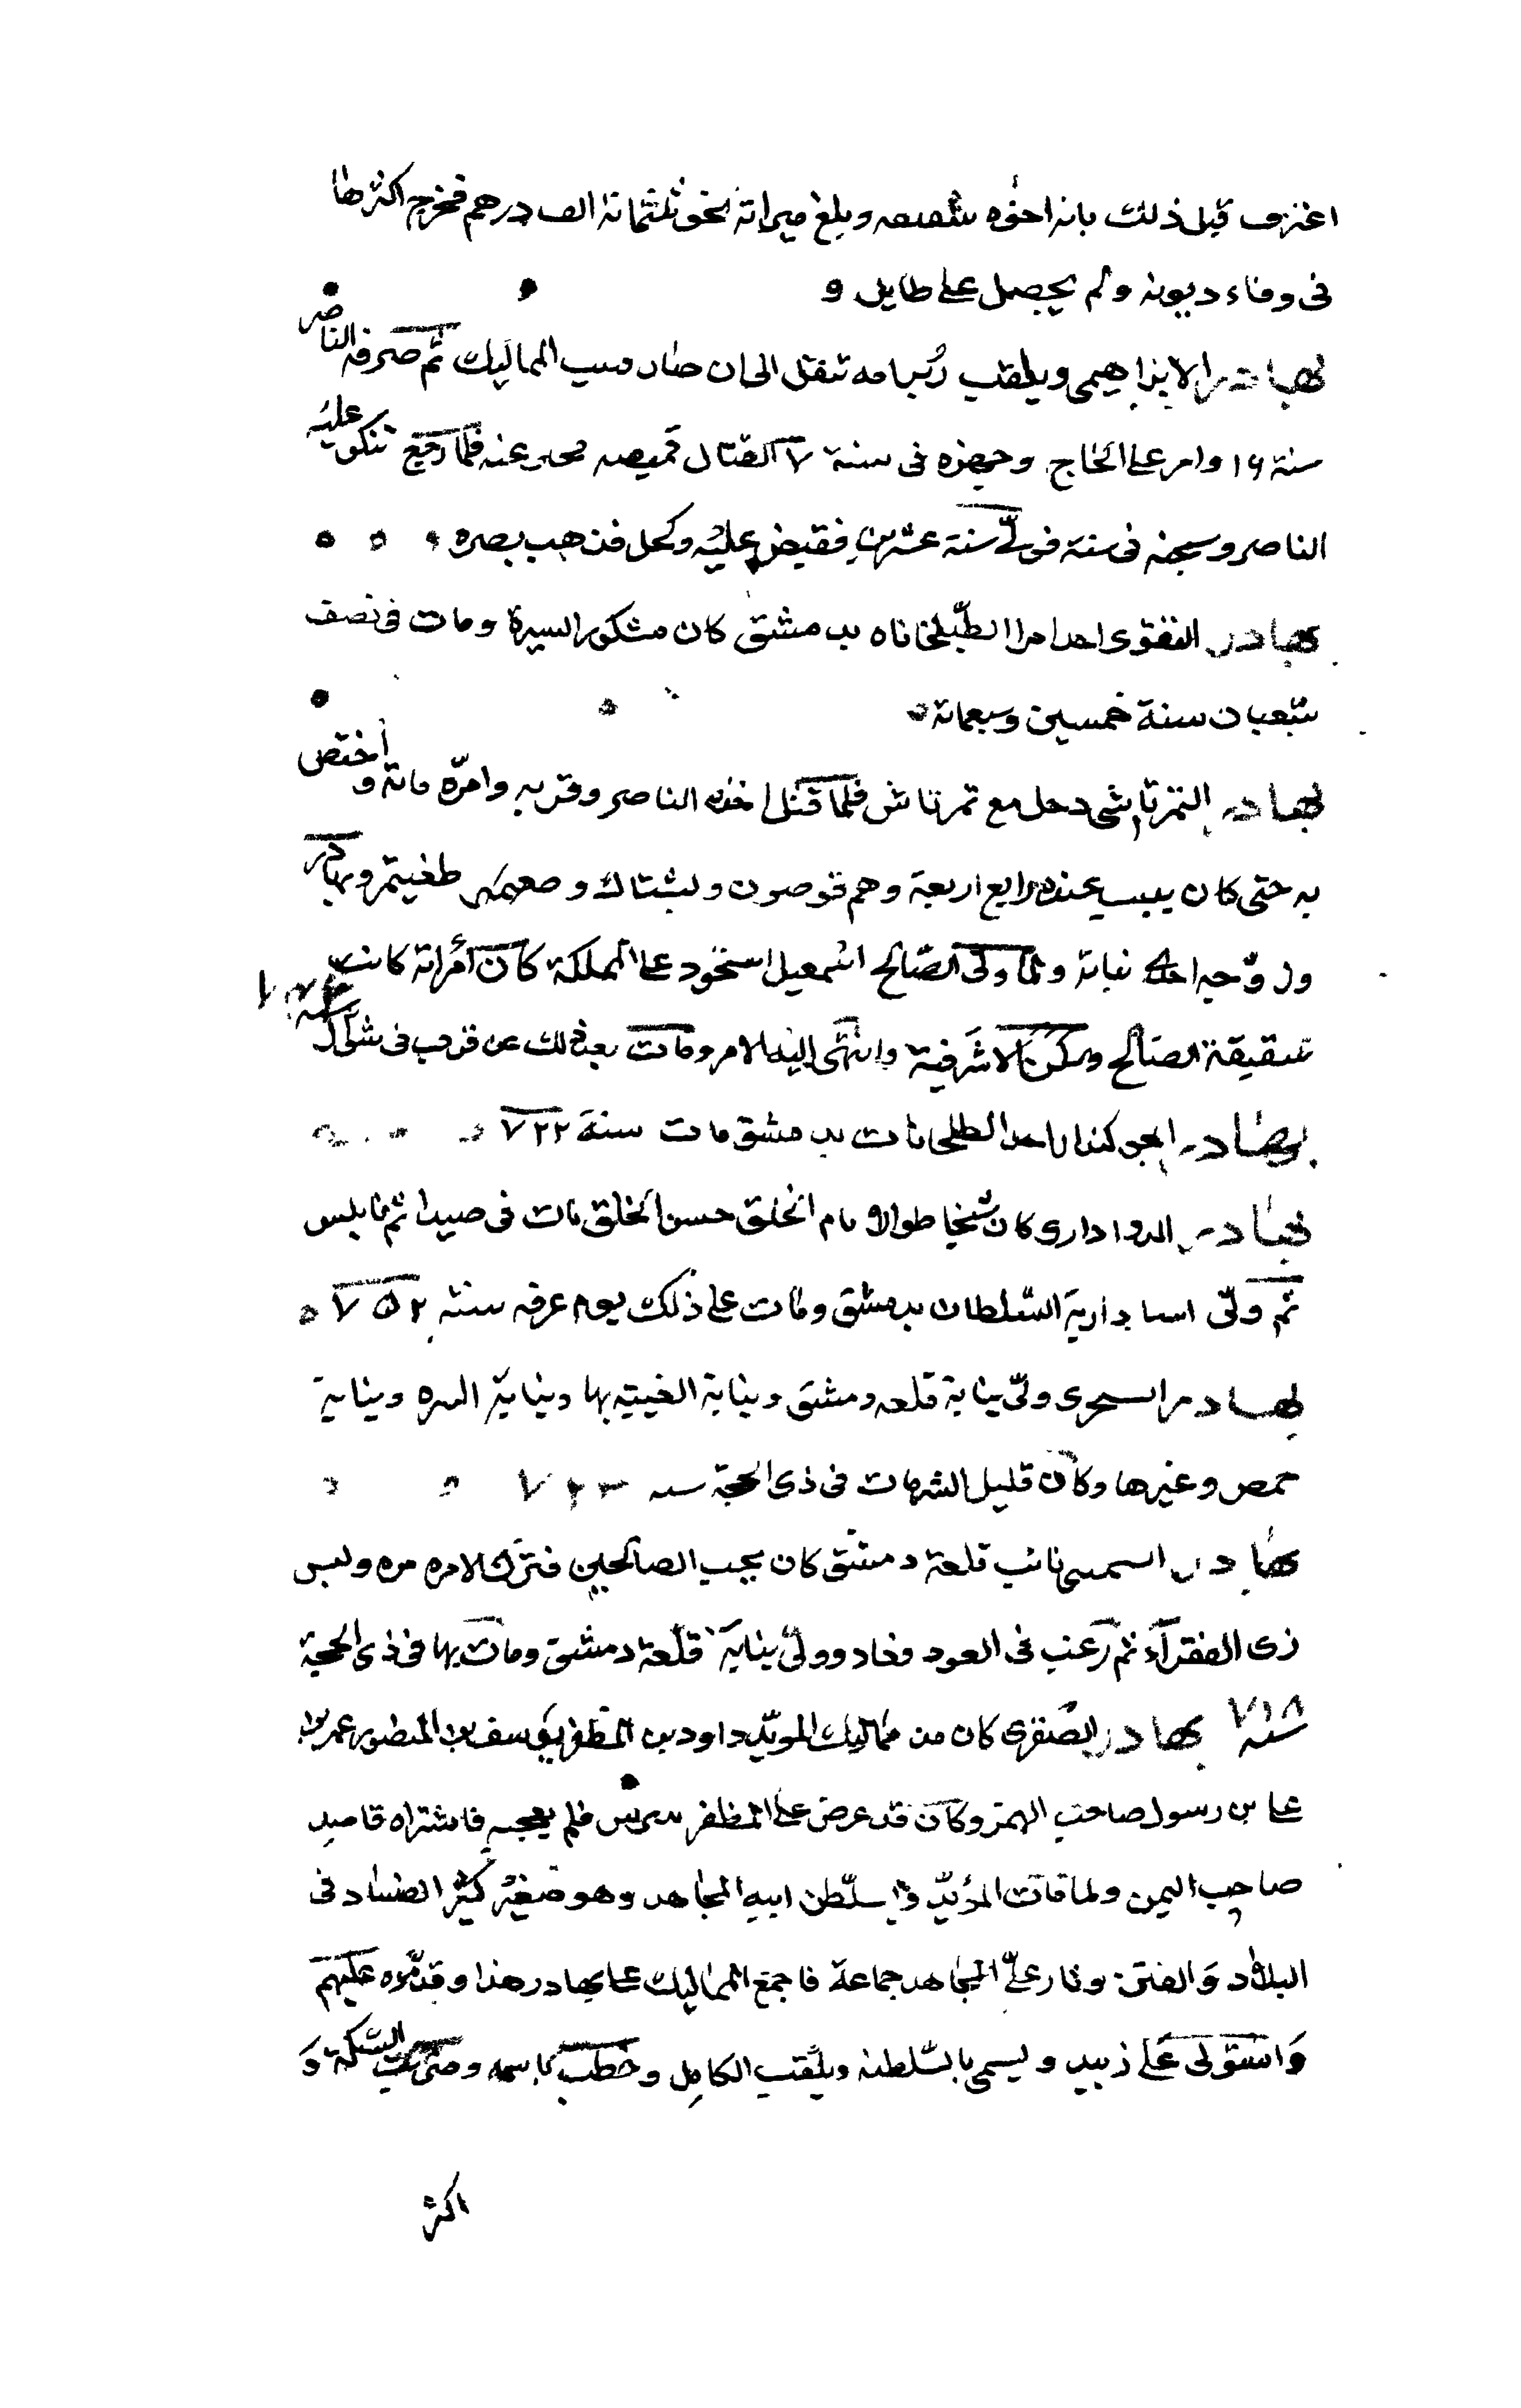 اعترف قبل ذلك بانه اخوه شقيقه وبلغ ميراثه نحو ثلثمائة الف درهم فخرج اكثرها
فى وفاء ديونه ولم يحصل على طايل و
بهادر الابراهيمى ويلقب زيرامه تنقل الى ان صار نقيب المماليك ثم صرفه الناصر
سنة ١٦ وامر على الحاج وجهزه فى سنة ٧ لقتال حميضه فلما رجع تنكر عليه
الناصر وسجنه فى سنة سنة عشرين فقبض عليه وكحل فذهب بصره
بهادر التقوى احد امرا الطبلخاناه بدمشق كان مشكور السيرة ومات فى نصف
شعبان سنة خمسين وسبعمائة
بهادر التمرتاشى دخل مع تمرتاش فلما قتل اخذه الناصر وقربه وامره مائة واختص
به حتى كان يبيت عنده رابع اربعة وهم قوصون وبشتاك وطغيتمر وبهادر
وزوجه احدى بناته ولما ولى الصالح اسمعيل استحوذ على المملكة كان امراته كانت
شقيقة الصالح وسكن الاشرفية وانتهى اليه الامر ومات بعد ذلك عن قرب فى شوال سنة ٧٤٣
بهادر الجوكندار احد الطبلخانات بدمشق مات سنة ٧٢٢
بهادر الدوادارى كان شيخا طوالا تام الخلق حسن الخلق بات فى صيدا ثم نابلس
ثم ولى استادارية السلطان بدمشق ومات على ذلك يوم عرفه سنة ٧٥٢
بهادر السنجرى ولى نيابة قلعه دمشق ونيابة الغيبه بها ونيابة البيره ونيابة
حمص وغيرها وكان قليل الشرمات فى ذى الحجة سنه ٧٣٣
بهادر الشمسى نائب قلعة دمشق كان يحب الصالحين فترك الامره مره ولبس
زى الفقراء ثم رغب فى العود فعاد وولى نيابة قلعة دمشق ومات بها فى ذى الحجة
سنه ٧١٨ بهادر الصقرى كان من مماليك المويد داود بن المظفر يوسف بن المنصور عمر بن
على بن رسول صاحب اليمن وكان قد عرض على المظفر بيبرس فلم يعجبه فاشتراه قاصد
صاحب اليمن ولما مات المؤيد وتسلطن ابنه المجاهد وهو صغير كثر الفساد فى
البلاد والفتن وثار على المجاهد جماعة فاجمع المماليك على بهادر هذا وقدموه عليهم
واستولى على زبيد وتسمى بالسلطنه وتلقب الكامل وخطب باسمه وضربت السكة و
اكثر